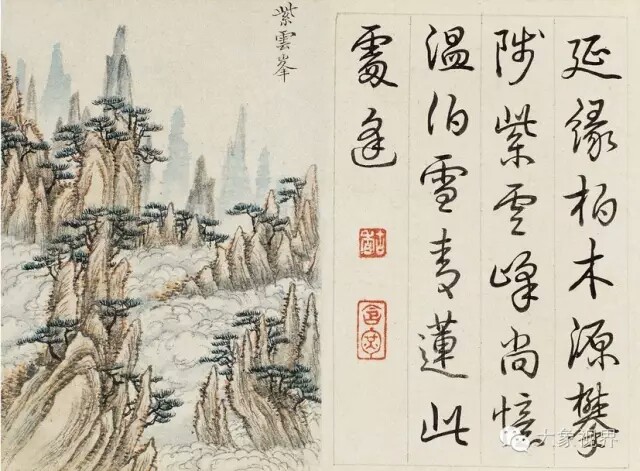 延緣柏木源攀
陟紫雲峰尚憶
溫伯雪青蓮此
處逢
紫雲峯
大象视界